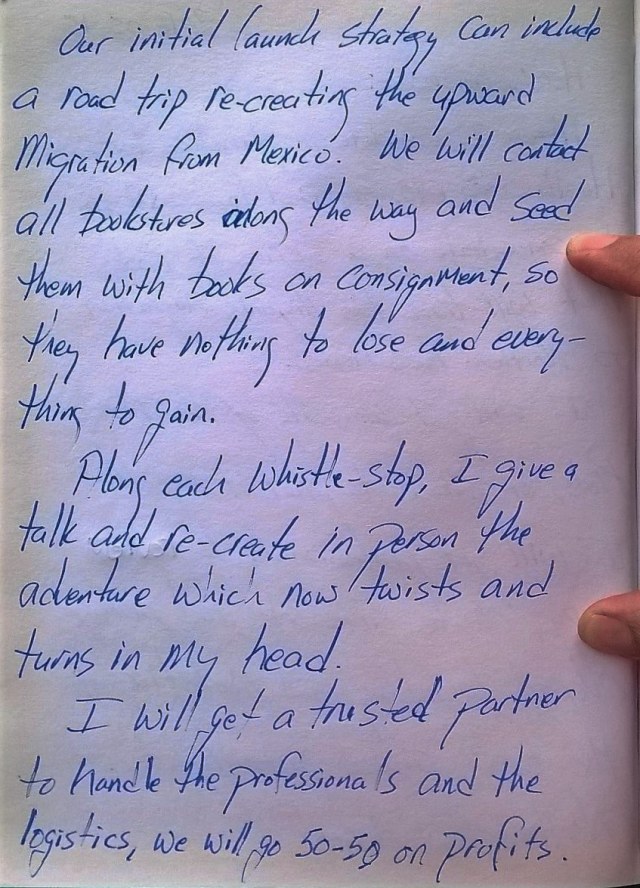 Our initial launch strategy can include
a road trip re-creating the upward
Migration from Mexico. We will contact
all bookstores along the way and seed
them with books on consignment, so
they have nothing to lose and every-
thing to gain.
Along each whistle-stop, I give a
talk and re-create in person the
adventure which now twists and
turns in my head.
I will get a trusted partner
to handle the professionals and the
logistics, we will go 50-50 on profits.